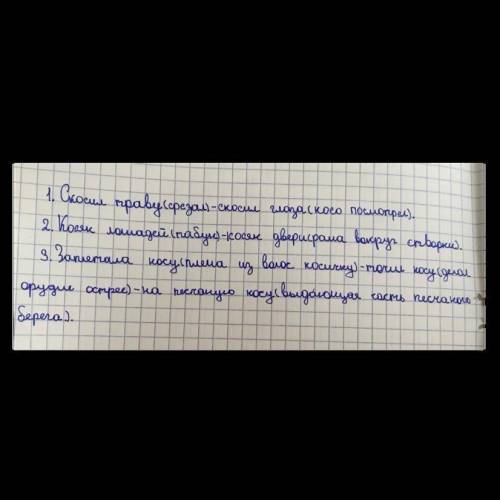 1. Скосил траву(срезал)-скосил глаза(косо посмотрел).
2. Косяк лошадей(табун)-косяк двери(рама вокруг створки).
3. Заплетала косу(плела из волос косичку)-точил косу(делал
орудие острее)-на песчаную косу(выдающая часть песчаного
берега).